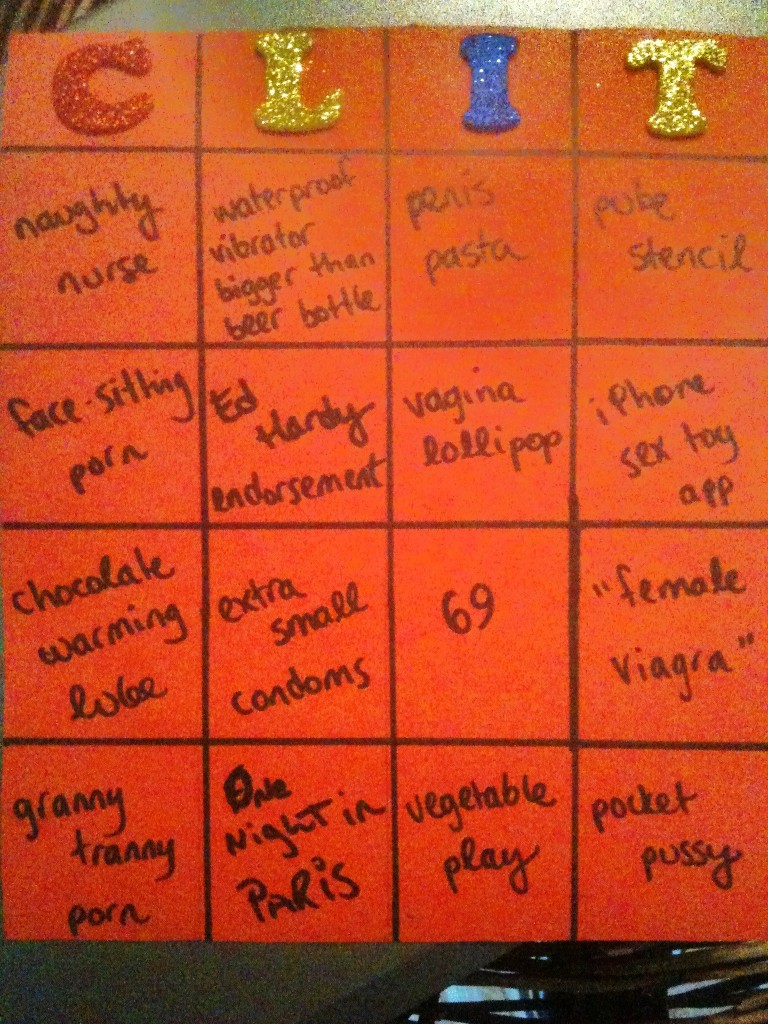 C L I T
naughty
nurse
waterproof
vibrator
bigger than
beer bottle
penis
pasta
pube
stencil
face-sitting
porn
Ed
Hardy
endorsement
vagina
lollipop
iPhone
sex toy
app
chocolate
warming
lube
extra
small
condoms
69
"female
viagra"
granny
tranny
porn
One
Night in
PARiS
vegetable
play
pocket
pussy